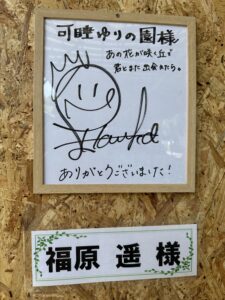 可睡ゆりの園様
あの花が咲く丘で
君とまた出会えたら。
Haruka
ありがとうございました!
福原 遥 様